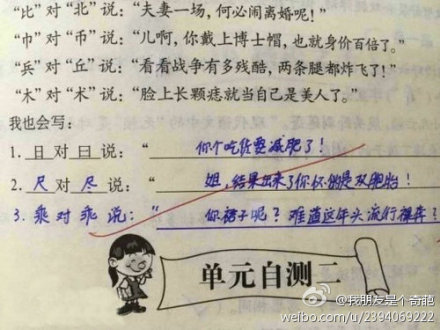 “比”对“北”说：“夫妻一场，何必闹离婚呢！”
“巾”对“币”说：“儿啊，你戴上博士帽，也就身价百倍了。”
“兵”对“丘”说：“看看战争有多残酷，两条腿都炸飞了！”
“木”对“术”说：“脸上长颗痣就当自己是美人了。”
我也会写：
1. 日 对 曰 说：“你个吃货要减肥了！
2. 尺 对 尽 说：“姐，结果出来了你怀的是双胞胎！
3. 乘 对 乖 说：“你裤子呢？难道这年头流行裸奔？
单元自测二
@我朋友是个奇葩
weibo.com/u/2394069222